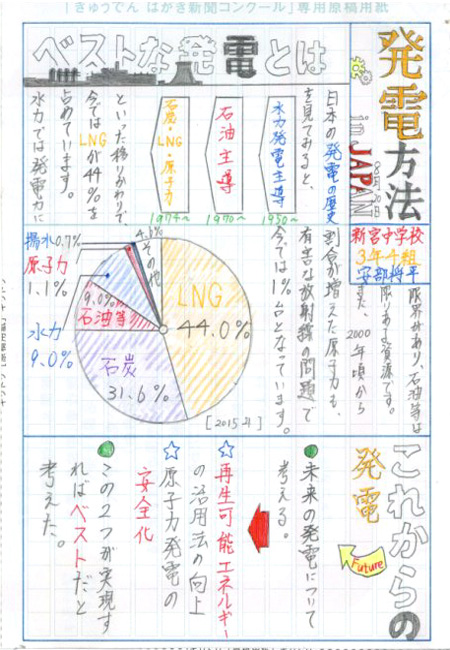 「きゅうでん はがき新聞コンクール」専用原稿用紙
発電方法
in JAPAN
新宮中学校
3年4組
安部将平
ベストな発電とは
日本の発電の歴史
を見てみると、
水力発電主導
1950〜
石油主導
1970〜
石炭・LNG・原子力
1974〜
といった移りかわりで、
今ではLNGが44%を
占めています。
水力では発電力に
限界があり、石油等は
限りある資源です。
また、2000年頃から
割合が増えた原子力も、
有害な放射線の問題で
今では1%台となっています。
LNG
44.0%
石炭
31.6%
石油等
9.0%
水力
9.0%
原子力
1.1%
揚水0.7%
その他
4.6%
[2015年]
これからの
発電
Future
●未来の発電について
考える。
☆再生可能エネルギー
の活用法の向上
☆原子力発電の
安全化
●この2つが実現す
ればベストだと
考えた。